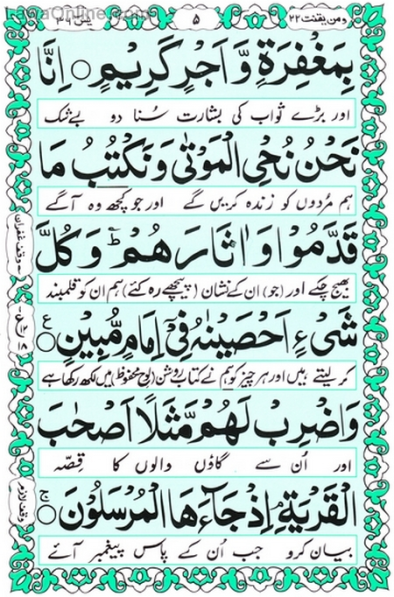 ومن یقنت ۲۲
۵
یٰس ۳۶
بِمَغْفِرَةٍ وَّاَجْرٍ كَرِيْمٍ ○ اِنَّا
اور بڑے ثواب کی بشارت سنا دو بےشک
نَحْنُ نُحْىِ الْمَوْتٰى وَنَكْتُبُ مَا
ہم مُردوں کو زندہ کریں گے اور جو کچھ وہ آگے
قَدَّمُوْا وَاٰثَارَهُمْ ؕ وَكُلَّ
بھیج چکے اور (جو) ان کے نشان (پیچھے رہ گئے) ہم ان کو قلمبند
شَىْءٍ اَحْصَيْنٰهُ فِىْۤ اِمَامٍ مُّبِيْنٍ ○ ع
کر لیتے ہیں اور ہر چیز کو ہم نے کتاب روشن (لوح محفوظ) میں لکھ رکھا ہے
وَاضْرِبْ لَهُمْ مَّثَلًا اَصْحٰبَ
اور اُن سے گاؤں والوں کا قِصّہ
الْقَرْيَةِ ۘ اِذْ جَآءَهَا الْمُرْسَلُوْنَ ○ ج
بیان کرو جب اُن کے پاس پیغمبر آئے
وقف غفران
وقف لازم